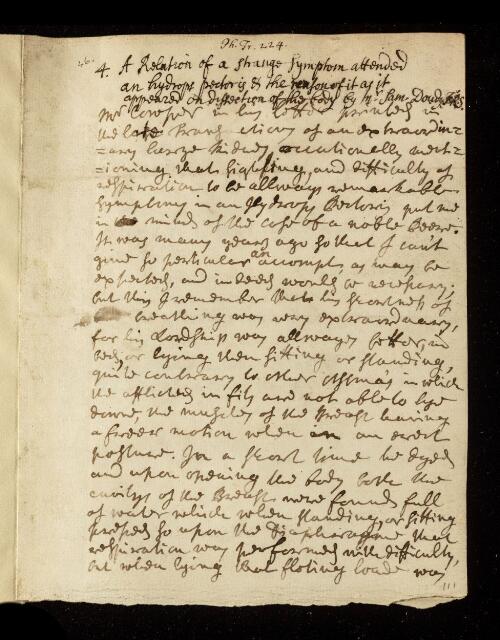 Ph. Tr. 224.
4. A Relation of a strange Symptom attended
an hydrops pectoris & the reason of it as it
appeared on dissection of the body by Mr Sam.
Mr Cowper in his letter printed in
the late Transactions of an extraordin=
=ary large kidney occasionally ment=
=ioning that sighting, and difficulty of
respiration to be allways remarkable
symptoms in an Hydrops Pectoris put me
in minde of the case of a noble Peere.
It was many years ago so that I can't
give so particular an accompt, as may be
expected, and indeed would be necessary;
but this I remember that his shortness of
breathing was very extraordinary,
for his Lordship was allwayes better in
bed, or lying then sitting or standing,
quite contrary to other Asthma's in which
the afflicted in fits are not able to lye
downe, the muscles of the Breast having
a freeer motion when in an erect
posture. In a short time he dyed
and upon opening the body both the
cavitys of the Breast were found full
of water which when standing, or sitting
pressed so upon the Diaphragme that
respiration was performed with difficulty,
but when lying that floting loade was
111